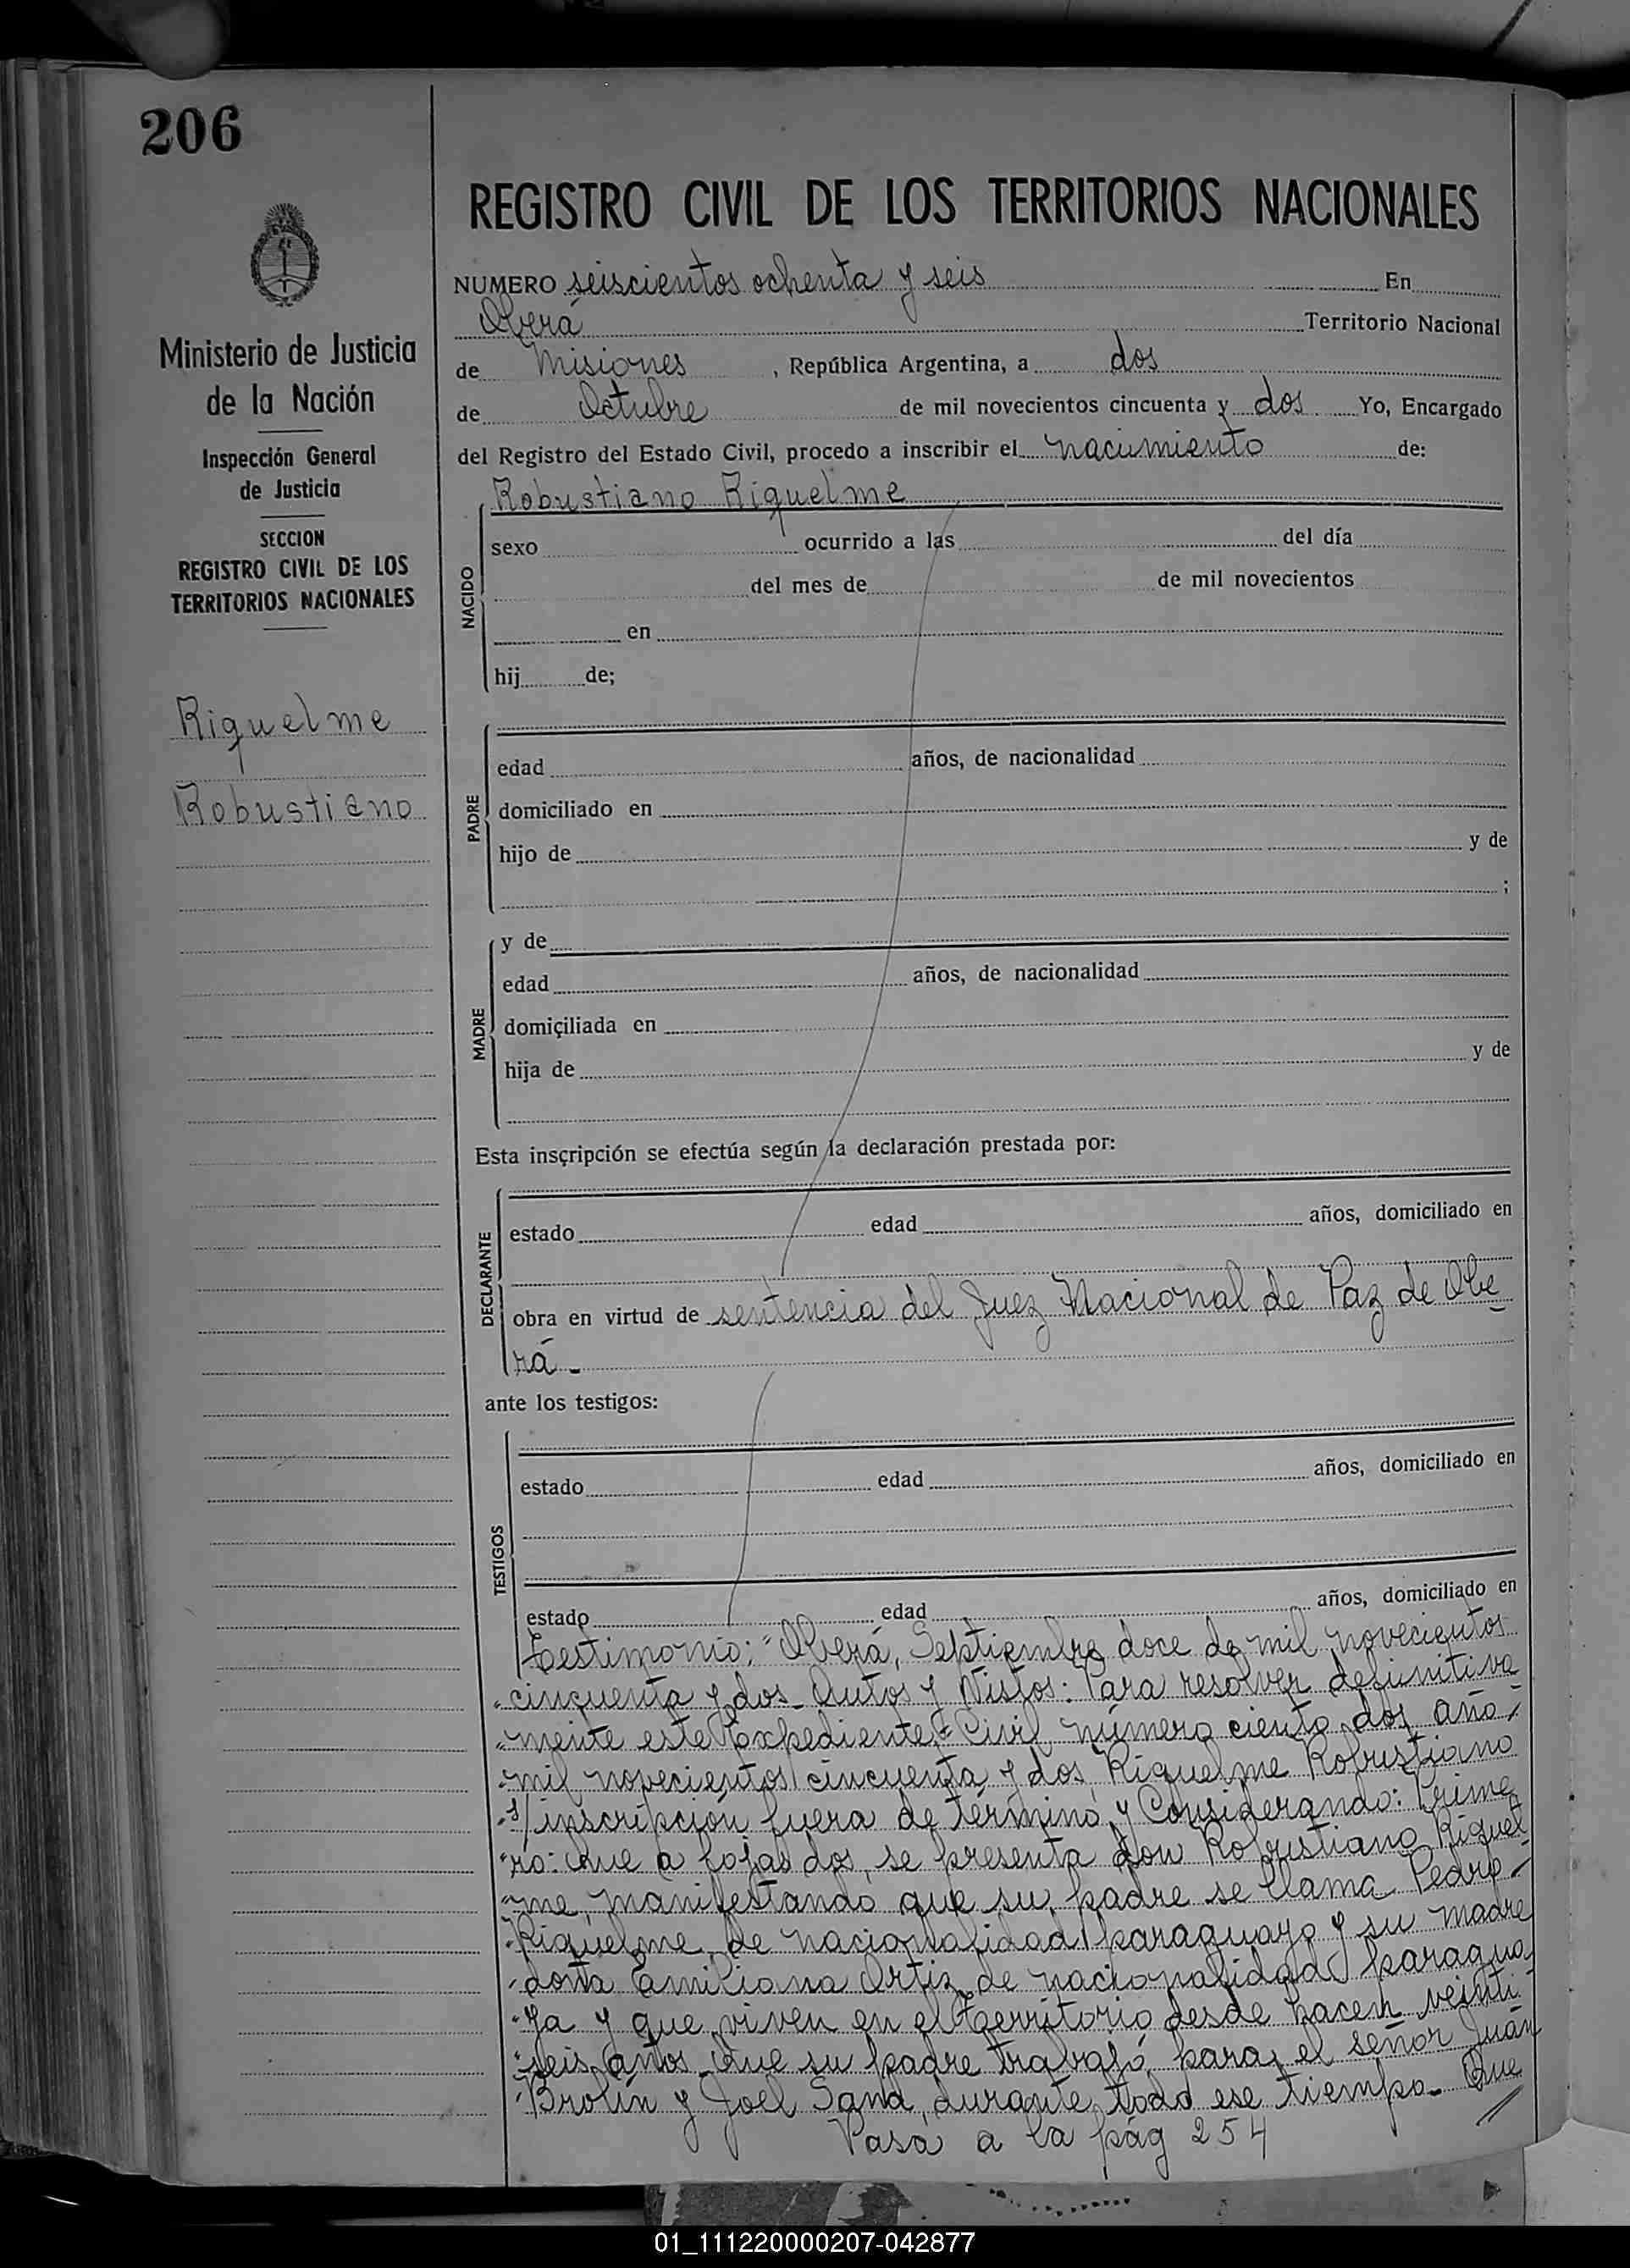 206
REGISTRO CIVIL DE LOS TERRITORIOS NACIONALES
NUMERO seiscientos ochenta y seis En
Oberá Territorio Nacional
de Misiones, República Argentina, a dos
de Octubre de mil novecientos cincuenta y dos Yo, Encargado
del Registro del Estado Civil, procedo a inscribir el nacimiento de:
Robustiano Riquelme
Ministerio de Justicia
de la Nación
Inspección General
de Justicia
SECCION
REGISTRO CIVIL DE LOS
TERRITORIOS NACIONALES
Riquelme
Robustiano
NACIDO
sexo ocurrido a las del día
del mes de de mil novecientos
en
hij de;
PADRE
edad años, de nacionalidad
domiciliado en
hijo de y de
;
MADRE
y de
edad años, de nacionalidad
domiciliada en
hija de y de
Esta inscripción se efectúa según la declaración prestada por:
DECLARANTE
estado edad años, domiciliado en
obra en virtud de sentencia del Juez Nacional de Paz de Obe
rá -
ante los testigos:
TESTIGOS
estado edad años, domiciliado en
estado edad años, domiciliado en
Testimonio: "Oberá, Septiembre doce de mil novecientos
"cincuenta y dos - Autos y Vistos: Para resolver definitiva
"mente este Expediente - Civil número ciento dos, año
"mil novecientos cincuenta y dos, Riquelme Robustiano
"s/inscripción fuera de término y Considerando: Prime
"ro: Que a fojas dos, se presenta don Robustiano Riquel
"me, manifestando que su padre se llama Pedro
"Riquelme, de nacionalidad paraguayo y su madre
"doña Emiliana Ortiz de nacionalidad paragua
"ya y que viven en el Territorio desde hacen veinti
"seis años. Que su padre trabajó para el señor Juán
"Brolín y Joel Sand, durante todo ese tiempo. Que
Pasa a la pág 254
01_111220000207-042877